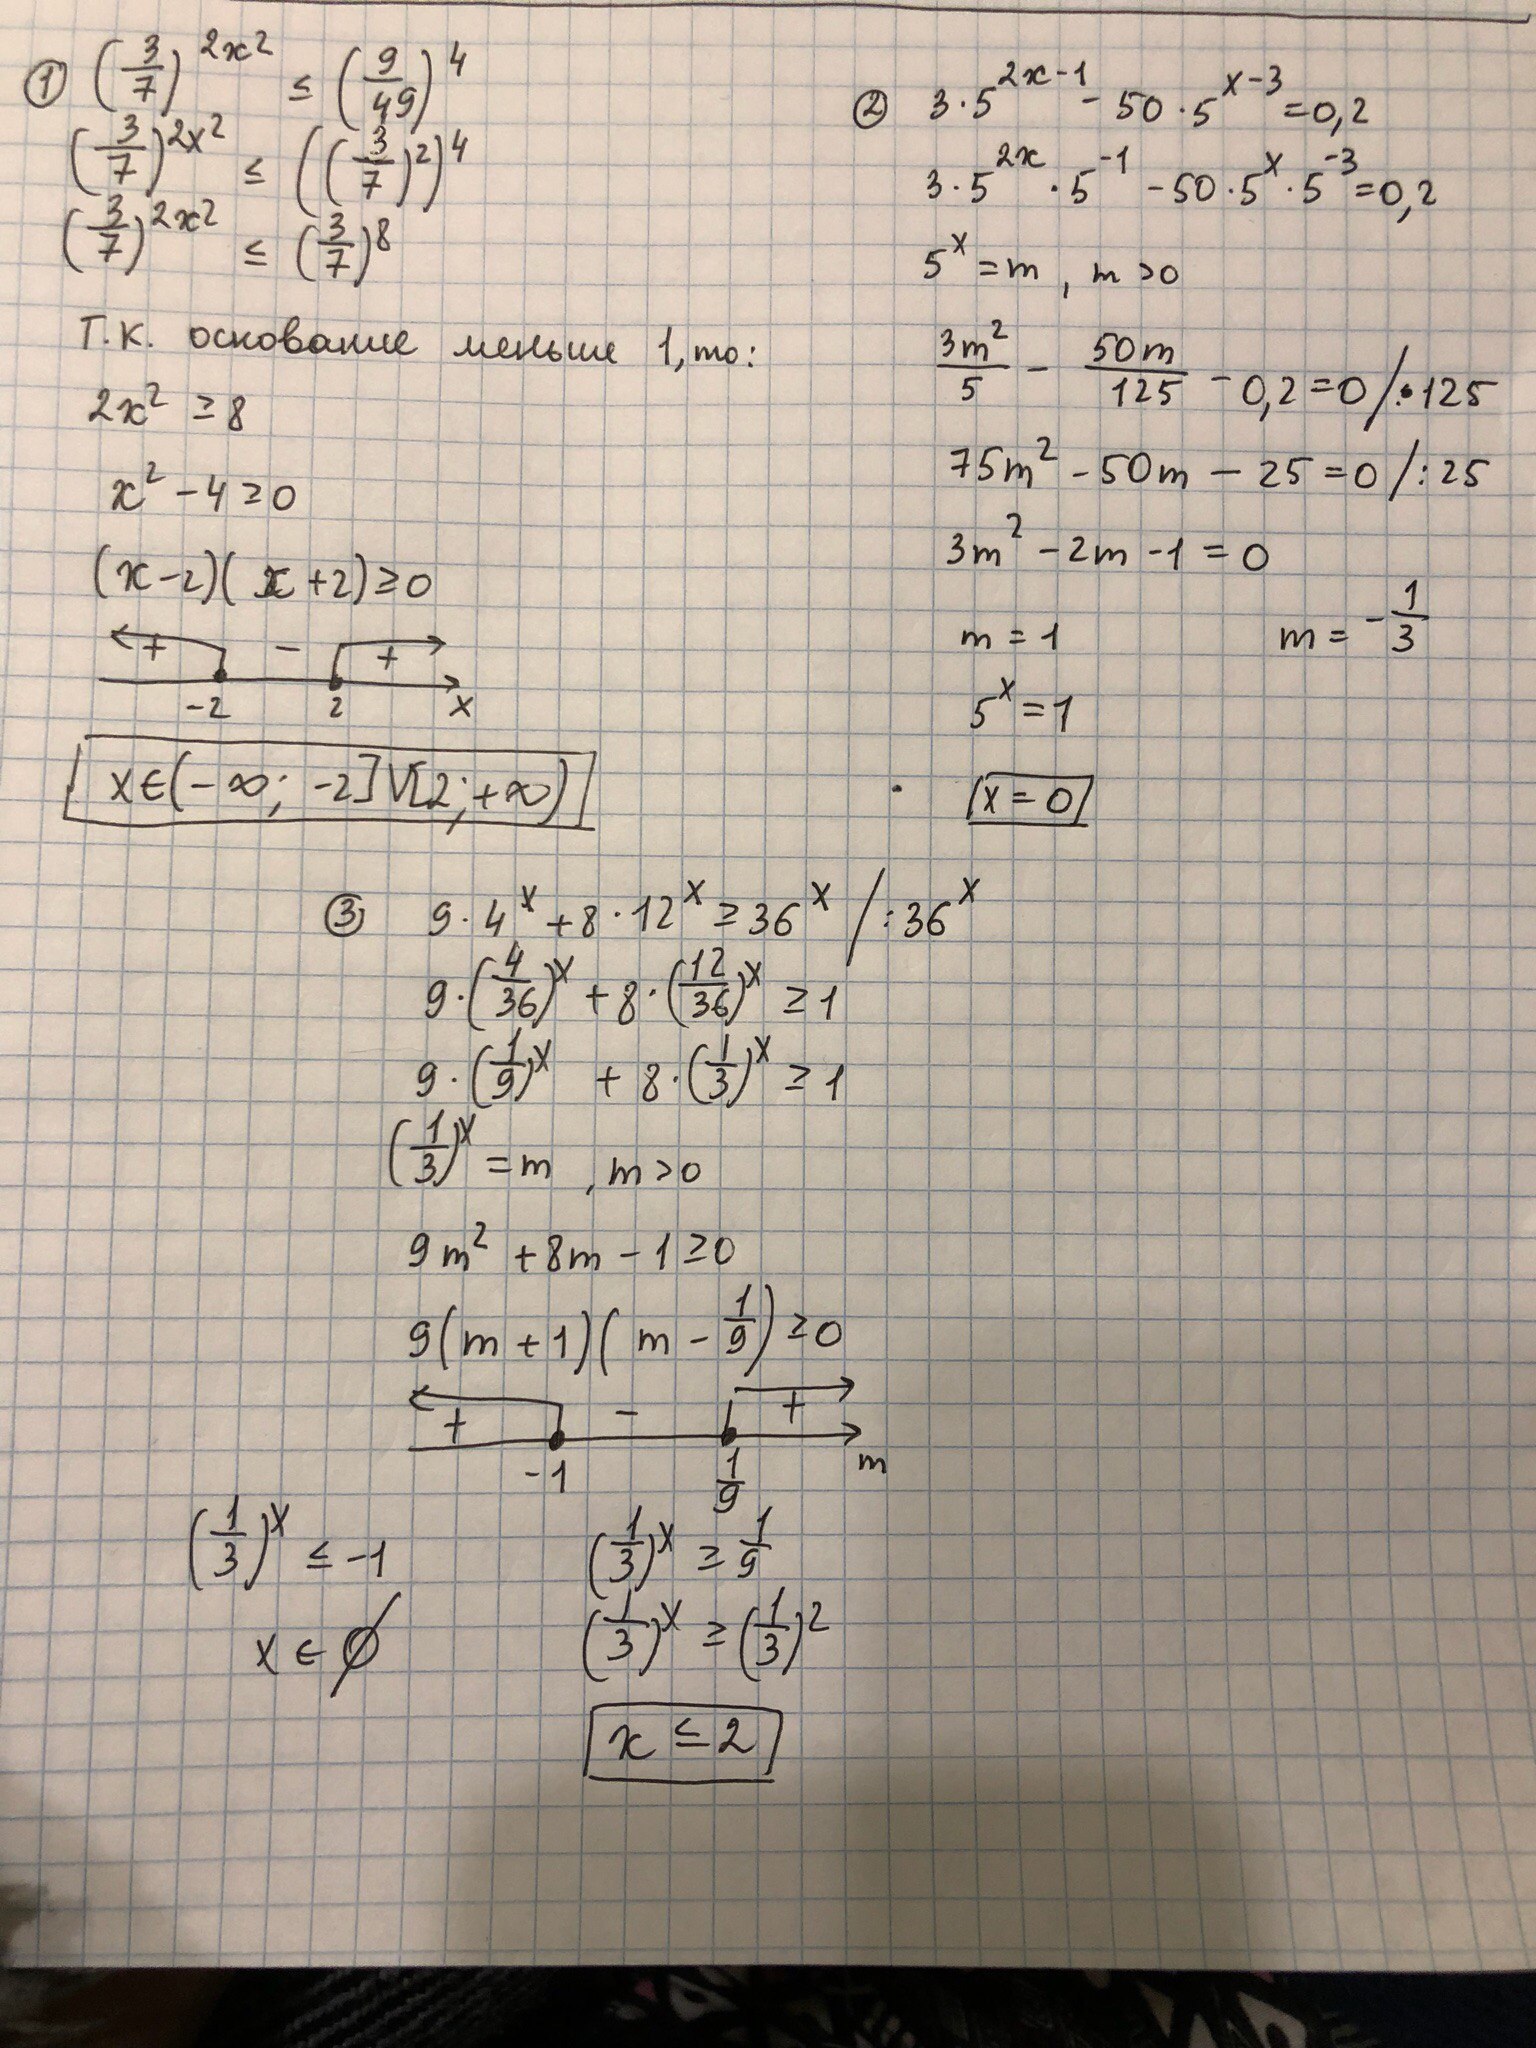 ① (3/7)^(2x²) ≤ (9/49)^4
(3/7)^(2x²) ≤ ((3/7)²)^4
(3/7)^(2x²) ≤ (3/7)^8
Т.к. основание меньше 1, то:
2x² ≥ 8
x² - 4 ≥ 0
(x-2)(x+2) ≥ 0
+ - +
-2 2 x
x ∈ (-∞; -2] V [2; +∞)
② 3·5^(2x-1) - 50·5^(x-3) = 0,2
3·5^(2x)·5^(-1) - 50·5^x·5^(-3) = 0,2
5^x = m, m > 0
3m²/5 - 50m/125 - 0,2 = 0 /·125
75m² - 50m - 25 = 0 /:25
3m² - 2m - 1 = 0
m = 1 m = -1/3
5^x = 1
x = 0
③ 9·4^x + 8·12^x ≥ 36^x /:36^x
9·(4/36)^x + 8·(12/36)^x ≥ 1
9·(1/9)^x + 8·(1/3)^x ≥ 1
(1/3)^x = m, m > 0
9m² + 8m - 1 ≥ 0
9(m+1)(m - 1/9) ≥ 0
+ - +
-1 1/9 m
(1/3)^x ≤ -1 (1/3)^x ≥ 1/9
x ∈ ∅ (1/3)^x ≥ (1/3)²
x ≤ 2